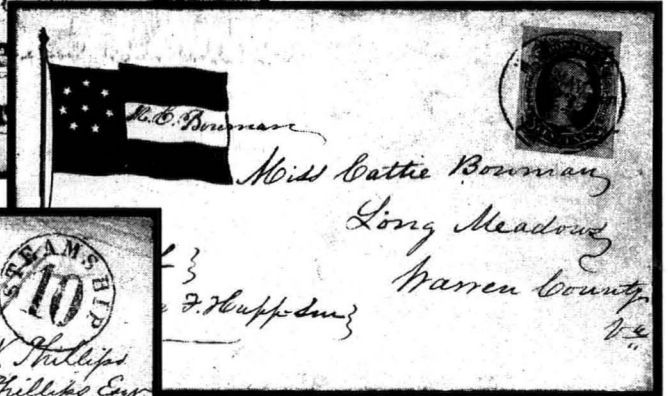 M. E. Bowman
Miss Cattie Bowman
Long Meadows
Warren County
Va
F. Hupp-Sen
STEAMSHIP
10
Phillips
Phillips Esqr